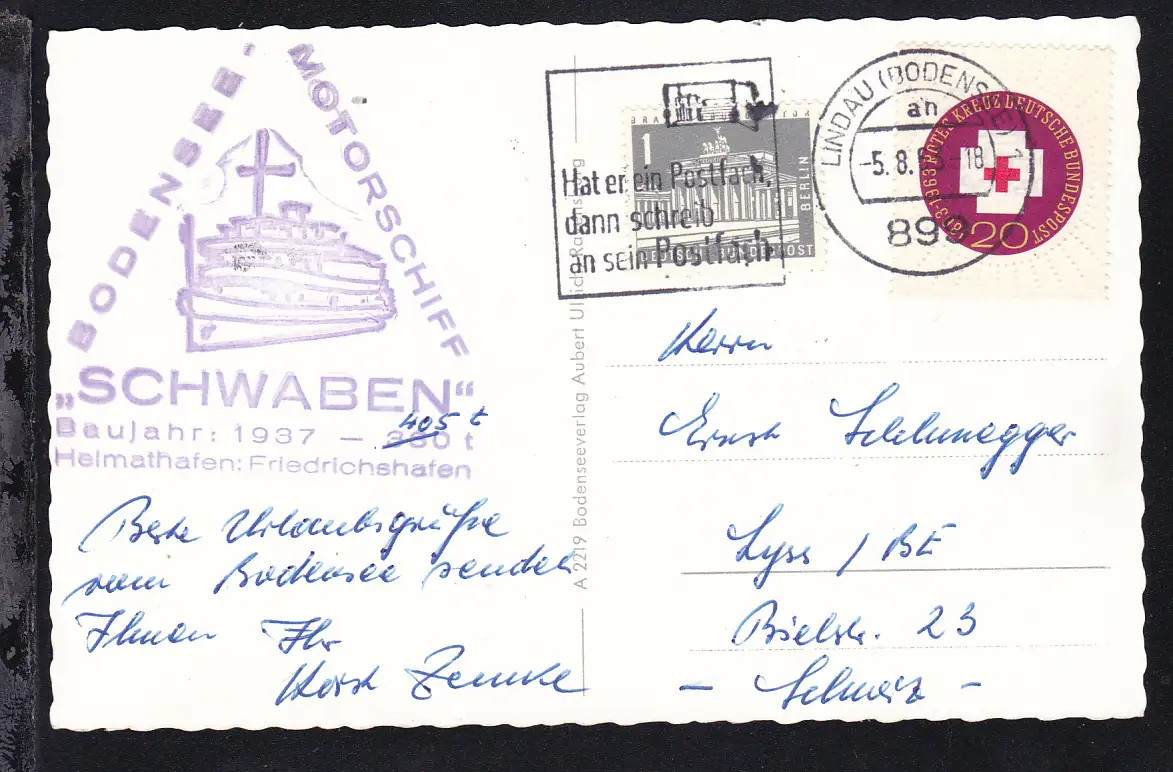 BODENSEE-MOTORSCHIFF
„SCHWABEN“
Baujahr: 1937 — 380 t
405 t
Heimathafen: Friedrichshafen
Beste Urlaubsgrüße
vom Bodensee sendet
Ihnen Ihr
Horst Zemke
A 2219 Bodenseeverlag Aubert Ulrich
Hat er ein Postfach,
dann schreib
an sein Postfach
1
BERLIN
DEUTSCHE BUNDESPOST
LINDAU (BODENSEE) 1
an
-5.8.63-18
899
1863-1963 ROTES KREUZ DEUTSCHE BUNDESPOST
20
Herrn
Ernst Schlunegger
Lyss / BE
Bielstr. 23
- Schweiz -